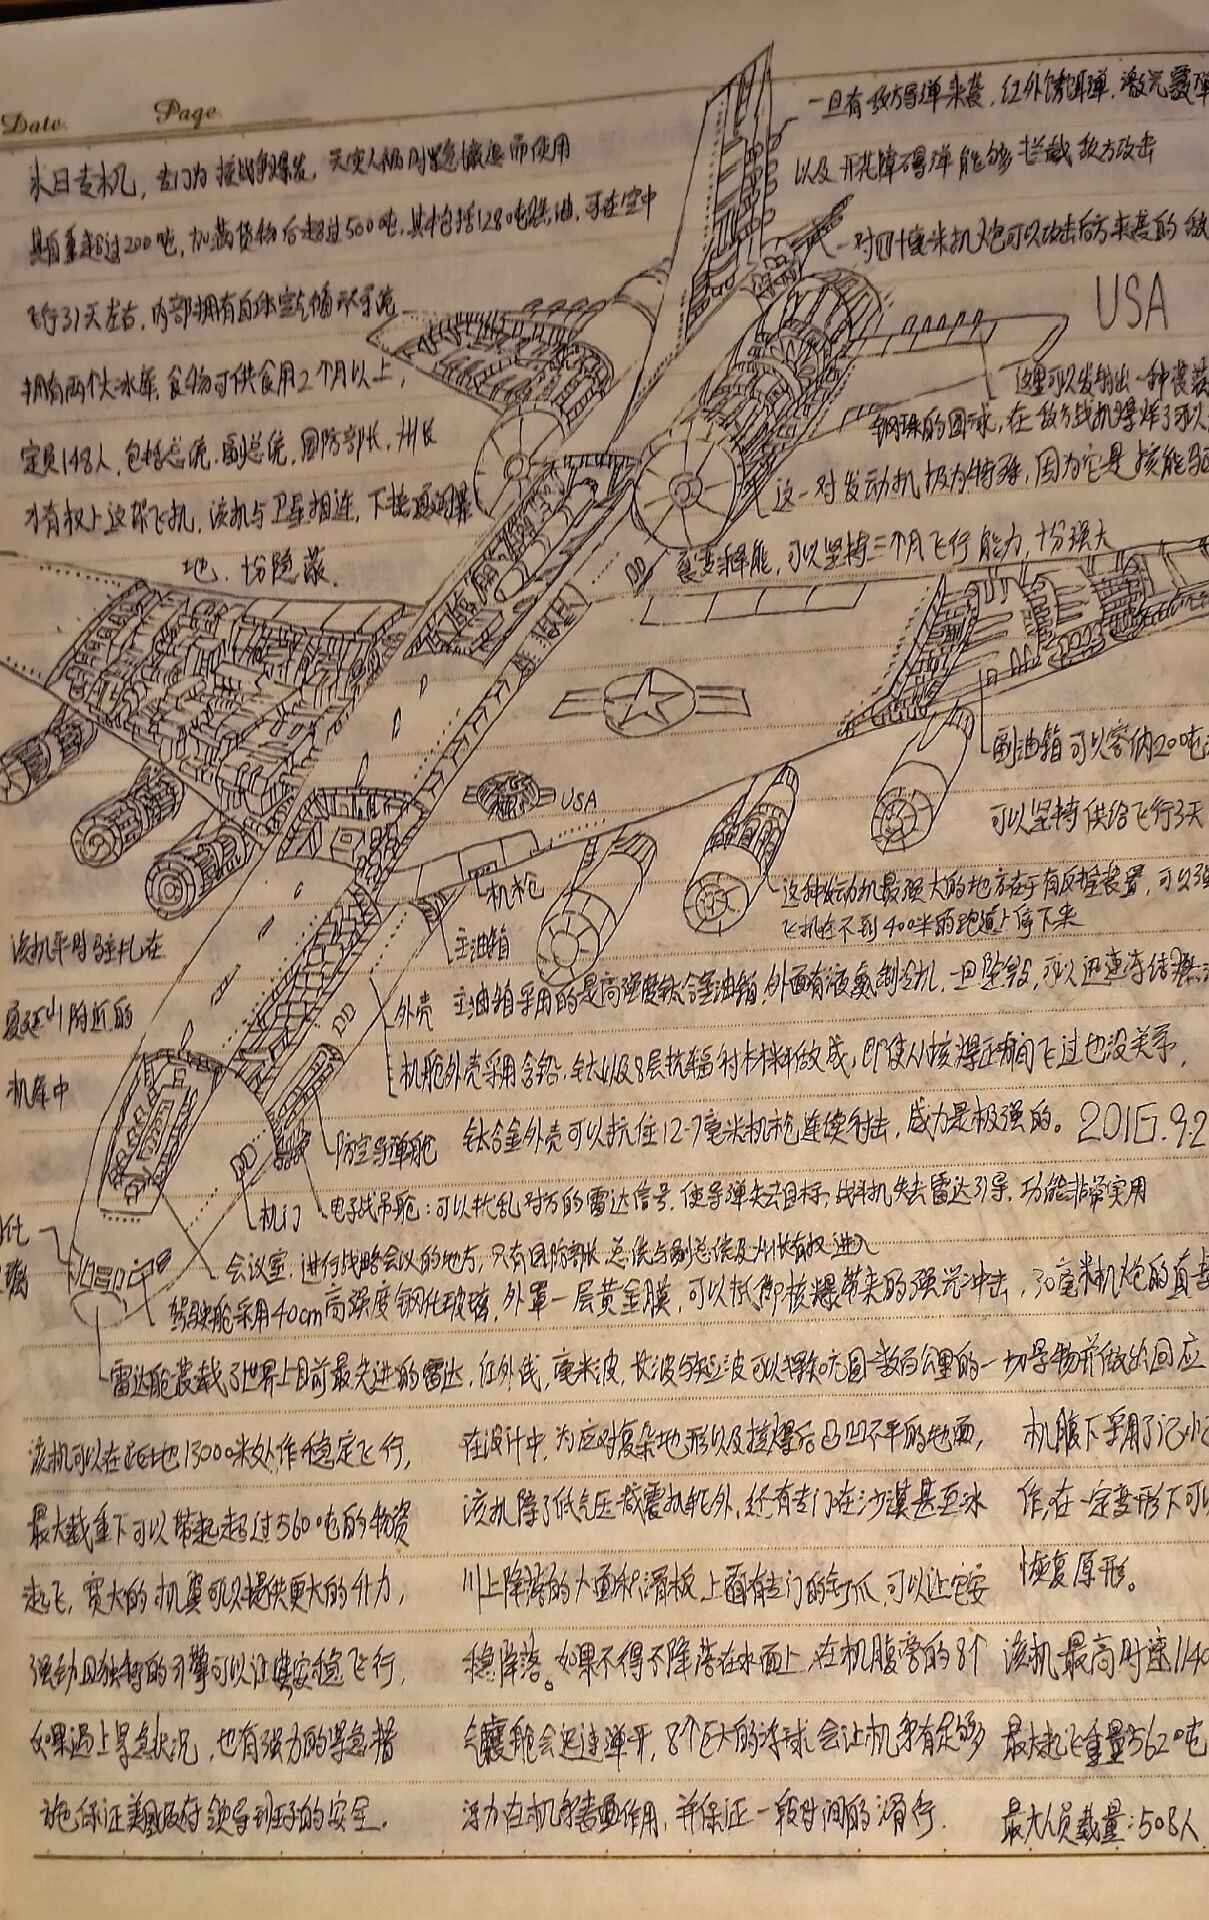 Date
Page
末日专机，专门为核战争爆发，天灾人祸时隐蔽而使用
具有重超过200吨，加满货物后超过500吨，其中包括128吨燃油，可在空中
飞行31天左右，内部拥有自体空气循环系统
拥有两个大冰库，食物可供食用2个月以上，
定员148人，包括总统、副总统，国防部长，州长
才有权上这架飞机，该机与卫星相连，下接通
地，十分隐蔽．
一旦有敌方导弹来袭，红外诱饵弹，激光
以及开花障碍弹能够拦截敌方攻击
一对四十毫米机炮可以攻击后方来袭的敌
USA
这里可以发射出一种装
钢珠的圆球，在敌方战机爆炸了可以
这一对发动机极为特殊，因为它是核能
裂变释能，可以坚持三个月飞行能力，十分强大
副油箱可以容纳200吨
可以坚持供给飞行3天
USA
机枪
这种发动机最强大的地方在于有反推装置，可以
飞机在不到400米的跑道上停下来
主油箱
该机平时驻扎在
山附近的
机库中
外壳
主油箱采用的是高强度钛合金油箱，外面有液氮制冷机，一旦，可以迅速冻结
机舱外壳采用含铅，钛以及8层抗辐衬材料做成，即使从核爆正中间飞过也没关系，
防空导弹舱
钛合金外壳可以抗住12-7毫米机枪连续射击，威力是极强的。2016.9.2
机门
电子战吊舱：可以扰乱对方的雷达信号，使导弹失去目标，战斗机失去雷达引导，功能非常实用
会议室，进行战略会议的地方，只有国防部长总统与副总统及州长有权进入
驾驶舱采用40cm高强度钢化玻璃，外罩一层黄金膜，可以抵御核爆带来的强光冲击，30毫米机炮的直
雷达舱装载了世界上目前最先进的雷达，红外线，毫米波，长波与短波可以探知方圆数百公里的一切事物并做出回应
该机可以在距地13000米处作稳定飞行，
最大载重下可以带起超过560吨的物资
起飞，宽大的机翼可以提供更大的升力，
强劲且独特的引擎可以让其安稳飞行，
如果遇上紧急状况，也有强力的紧急措
施保证美国政府领导班子的安全．
在设计中，为应对复杂地形以及核爆后凸凹不平的地面，
该机除了低气压减震机轮外，还有专门在沙漠甚至冰
川上降落的大面积滑板，上面有专门的钩爪，可以让它安
稳降落。如果不得不降落在水面上，在机腹旁的8个
气囊舱会迅速弹开，8个巨大的浮球会让机身有足够
浮力在机身表面作用，并保证一段时间的滑行．
机腹下采用了记忆
作，在一定变形下可以
恢复原形。
该机最高时速1140
最大起飞重量562吨
最大人员载量：508人